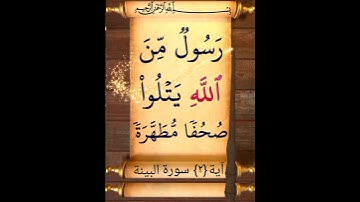 بسم الله الرحمن الرحيم
رَسُولٌ مِّنَ
ٱللَّهِ يَتْلُوا۟
صُحُفًا مُّطَهَّرَةً
آية {٢} سورة البينة